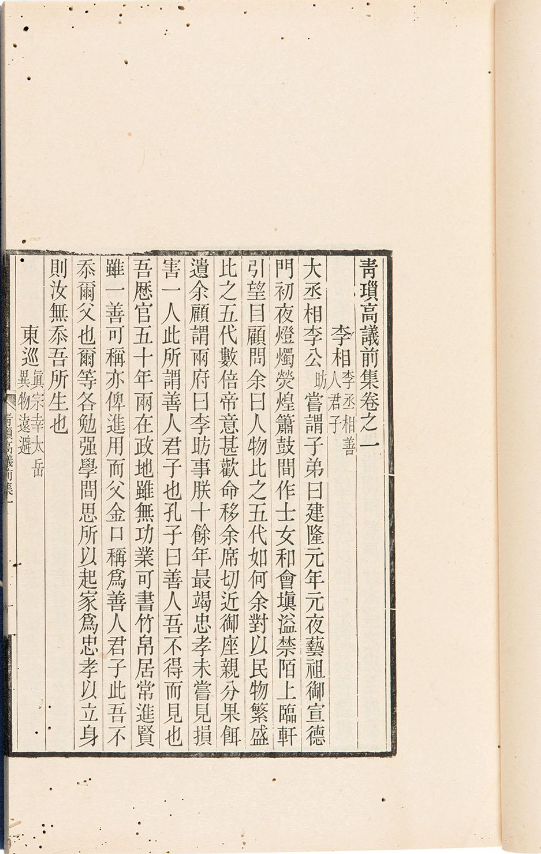 青瑣高議前集卷之一
李相 李丞相善人君子
大丞相李公昉嘗謂子弟曰建隆元年元夜藝祖御宣德
門初夜燈燭熒煌簫鼓間作士女和會塡溢禁陌上臨軒
引望目顧問余曰人物比之五代如何余對以民物繁盛
比之五代數倍帝意甚歡命移余席切近御座親分果餌
遺余顧謂兩府曰李昉事朕十餘年最竭忠孝未嘗見損
害一人此所謂善人君子也孔子曰善人吾不得而見也
吾歷官五十年兩在政地雖無功業可書竹帛居常進賢
雖一善可稱亦俾進用而父金口稱爲善人君子此吾不
忝爾父也爾等各勉强學問思所以起家爲忠孝以立身
則汝無忝吾所生也
東巡 眞宗幸太岳異物遠避
青瑣高議前集一